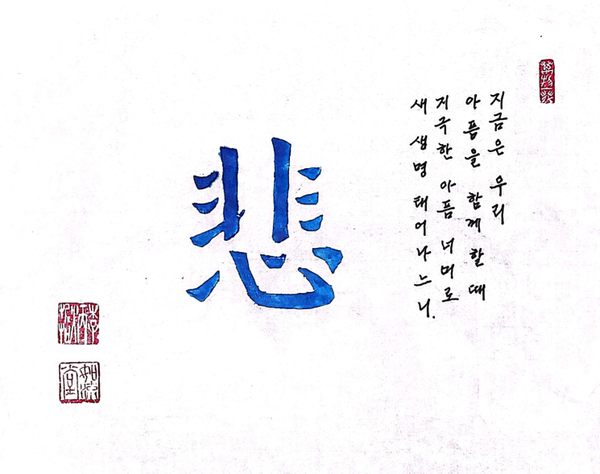 지금은 우리
아픔을 함께 할 때
지극한 아픔 너머로
새 생명 태어나느니.
悲